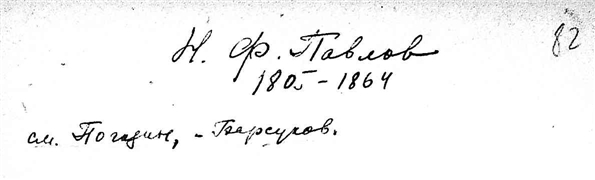 Н. Ф. Павлов
82
1805-1864
см. Погодин, - Барсуков.